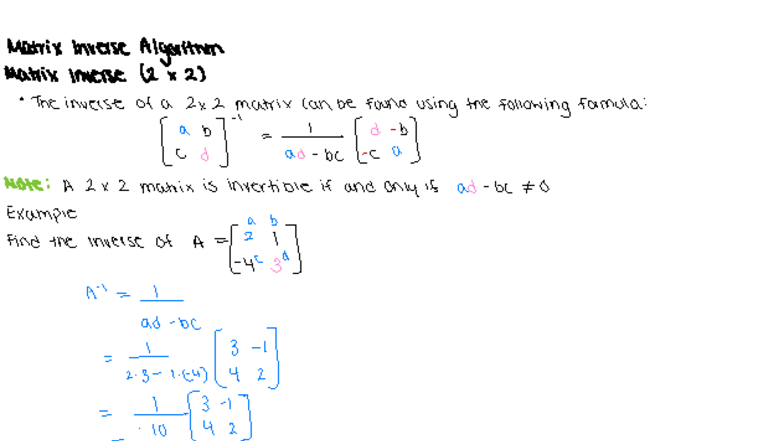 Matrix Inverse Algorithm
Matrix Inverse (2 × 2)
• The inverse of a 2×2 matrix can be found using the following formula:
[a b; c d]⁻¹ = 1/(ad - bc) [d -b; -c a]
Note: A 2×2 matrix is invertible if and only if ad - bc ≠ 0
Example
a b
Find the inverse of A = [2 1; -4 3]
c d
A⁻¹ = 1/(ad - bc)
= 1/(2·3 - 1·(-4)) [3 -1; 4 2]
= 1/10 [3 -1; 4 2]